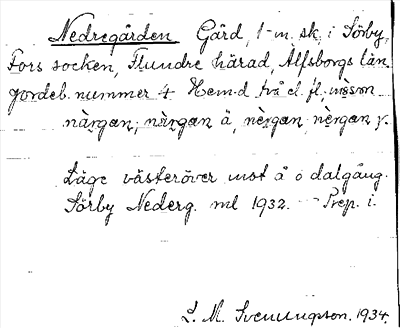 Nedregården Gård, 1-m. sk. i Sörby,
Fors socken, Flundre härad, Älfsborgs län
jordeb. nummer 4 Hem-d två el. fl.
nàrgan; nàrgan å, nèrgan; nèrgan y.
Läge västeröver mot å o dalgång.
Sörby Nederg. ml 1932. Prep. i.
L. M. Svenungson. 1934.